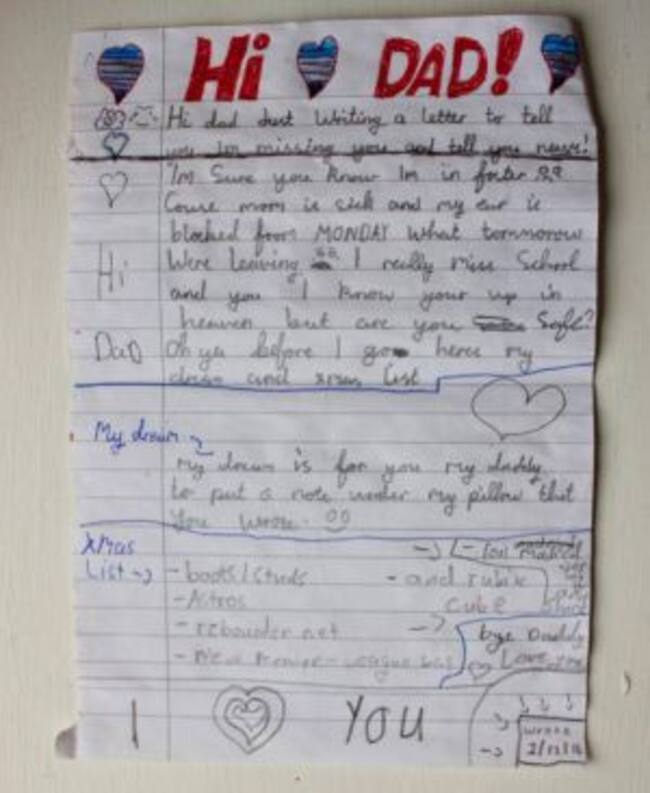 Hi DAD!
Hi dad Just Writing a letter to tell
you Im missing you and tell you news!
Im Sure you know Im in foster
Couse mom is sick and my ear is
blocked from MONDAY What tommorow
Hi
Were leaving I really miss School
and you I know your up in
heaven but are you Safe?
Dad
Oh ya before I go here my
dream and xmas list
My dream
my dream is for you my daddy
to put a note under my pillow that
You wrote
XMas
List
- boots/Studs
- and rubix
cube
- Astros
- rebounder net
- New Premier-League ball
bye Daddy
Love you
I YOU
wrote